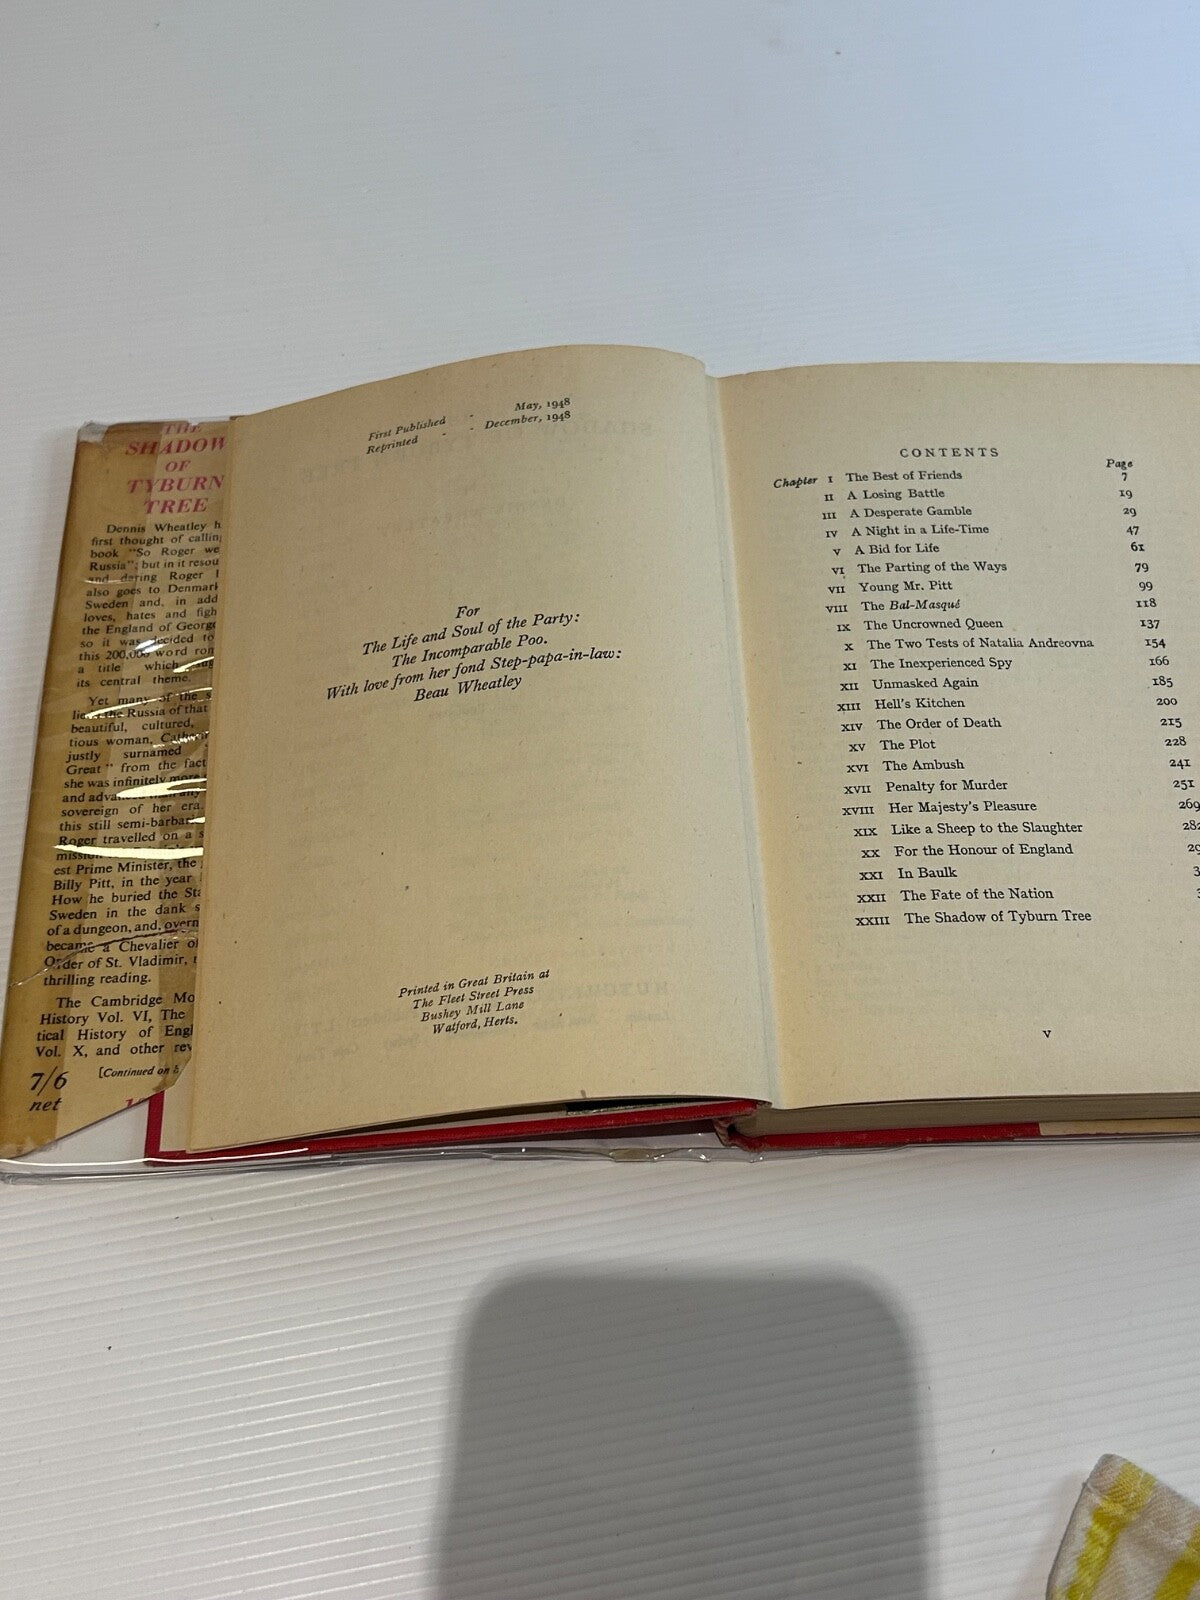 THE
SHADOW
OF
TYBURN
TREE
Dennis Wheatley
first thought of calling
book "So Roger
Russia"; but in it
and daring Roger
also goes to Denmark
Sweden and, in
loves, hates and
the England of George
so it was decided to
this 200,000 word
a title which
its central theme.
Yet many of the
the Russia of that
beautiful, cultured,
tious woman,
justly surnamed
Great" from the fact
she was infinitely more
and
sovereign of her era.
this still
Roger travelled on a
est Prime Minister, the
Billy Pitt, in the year
How he buried the
Sweden in the dank
of a dungeon, and,
became a Chevalier of
Order of St. Vladimir,
thrilling reading.
The Cambridge
History Vol. VI, The
tical History of
Vol. X, and other
[Continued on
7/6
net
First Published - May, 1948
Reprinted - - December, 1948
For
The Life and Soul of the Party:
The Incomparable Poo.
With love from her fond Step-papa-in-law:
Beau Wheatley
Printed in Great Britain at
The Fleet Street Press
Bushey Mill Lane
Watford, Herts.
CONTENTS
Chapter Page
I The Best of Friends 7
II A Losing Battle 19
III A Desperate Gamble 29
IV A Night in a Life-Time 47
V A Bid for Life 61
VI The Parting of the Ways 79
VII Young Mr. Pitt 99
VIII The Bal-Masqué 118
IX The Uncrowned Queen 137
X The Two Tests of Natalia Andreovna 154
XI The Inexperienced Spy 166
XII Unmasked Again 185
XIII Hell's Kitchen 200
XIV The Order of Death 215
XV The Plot 228
XVI The Ambush 241
XVII Penalty for Murder 251
XVIII Her Majesty's Pleasure 269
XIX Like a Sheep to the Slaughter 282
XX For the Honour of England
XXI In Baulk
XXII The Fate of the Nation
XXIII The Shadow of Tyburn Tree
v